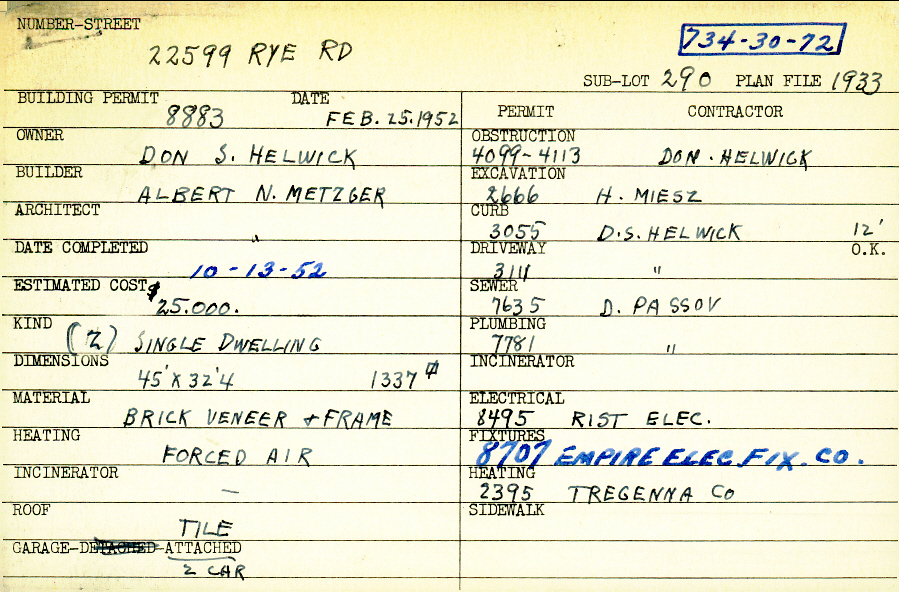 NUMBER-STREET
22599 RYE RD
734-30-72
SUB-LOT 290 PLAN FILE 1933
BUILDING PERMIT DATE
8883 FEB. 25.1952
OWNER
DON S. HELWICK
BUILDER
ALBERT N. METZGER
ARCHITECT
"
DATE COMPLETED
10-13-52
ESTIMATED COST $
25.000.
KIND
(2) SINGLE DWELLING
DIMENSIONS
45' X 32'4 1337
MATERIAL
BRICK VENEER + FRAME
HEATING
FORCED AIR
INCINERATOR
—
ROOF
TILE
GARAGE-DETACHED-ATTACHED
2 CAR
PERMIT CONTRACTOR
OBSTRUCTION
4099-4113 DON. HELWICK
EXCAVATION
2666 H. MIESZ
CURB
3055 D.S. HELWICK 12'
DRIVEWAY O.K.
3111 "
SEWER
7635 D. PASSOV
PLUMBING
7781 "
INCINERATOR
ELECTRICAL
8495 RIST ELEC.
FIXTURES
8707 EMPIRE ELEC. FIX. CO.
HEATING
2395 TREGENNA CO
SIDEWALK